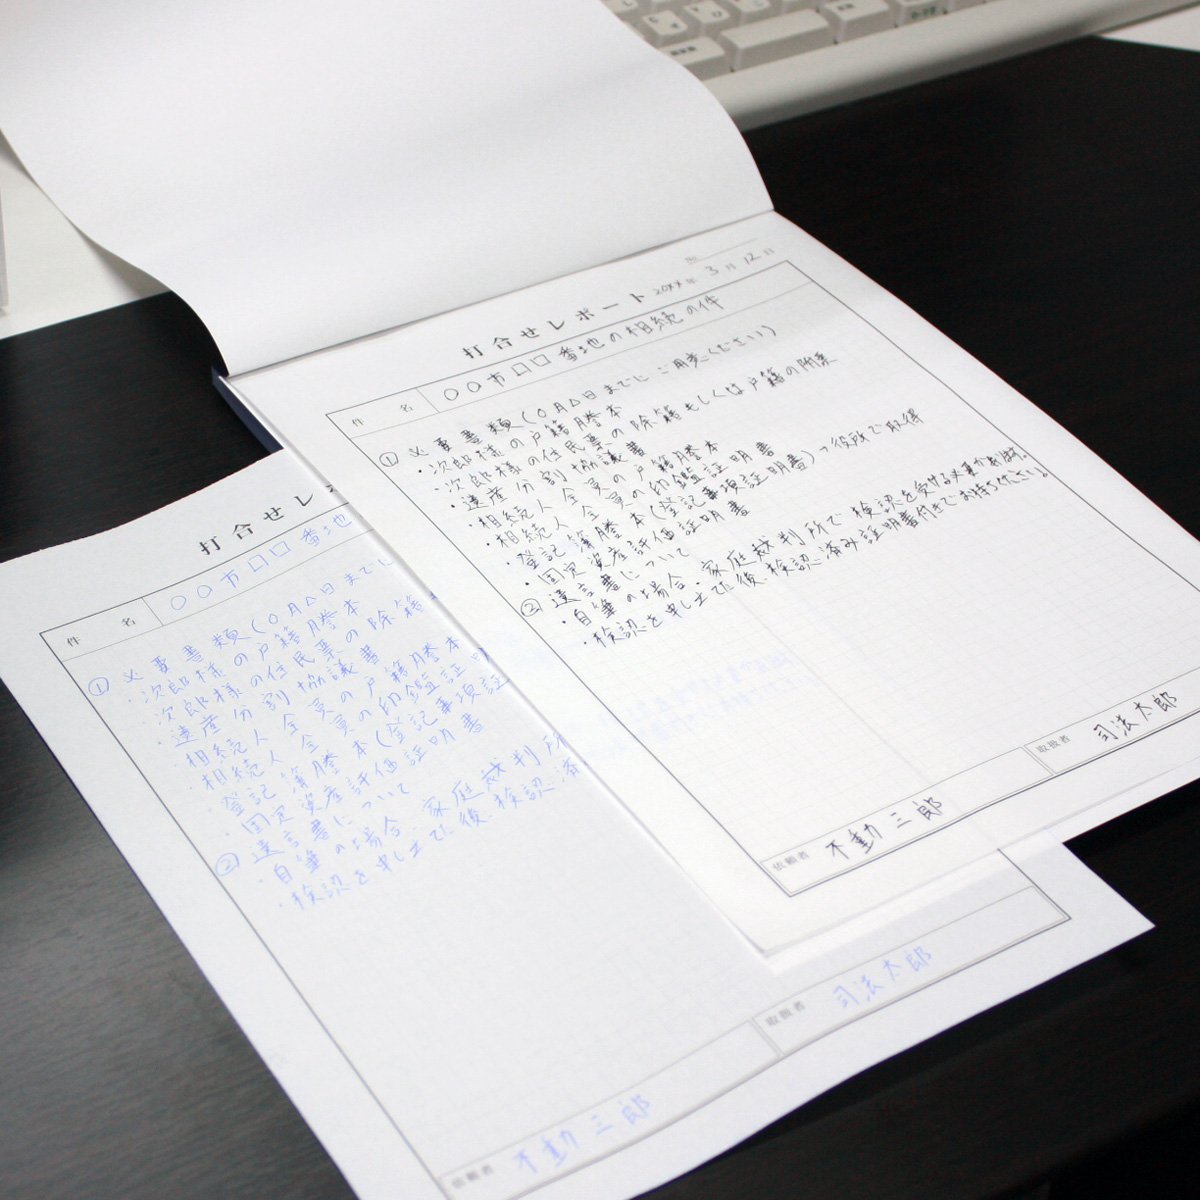 打合せレポート
20XX年 3月 12日
件名 〇〇市口口番地の相続の件
① 必要書類(〇月△日までに ご用意ください)
・次郎様の戸籍謄本
・次郎様の住民票の除籍もしくは戸籍の附票
・遺産分割協議書
・相続人全員の戸籍謄本
・相続人全員の印鑑証明書
・登記簿謄本(登記事項証明書)→役所で取得
・固定資産評価証明書
② 遺言書について
・自筆の場合、家庭裁判所で 検認を受ける必要があります。
・検認を申し立てた後、検認済み証明書付きでお待ちください。
取扱者 司法太郎
依頼者 不動三郎
打合せレ
件名 〇〇市口口番地
① 必要書類(〇月△日までに
・次郎様の戸籍謄本
・次郎様の住民票の除籍
・遺産分割協議書
・相続人全員の戸籍謄本
・相続人全員の印鑑証明
・登記簿謄本(登記事項証
・固定資産評価証明書
② 遺言書について
・自筆の場合、家庭裁判所
・検認を申し立てた後、検認済
取扱者 司法太郎
依頼者 不動三郎